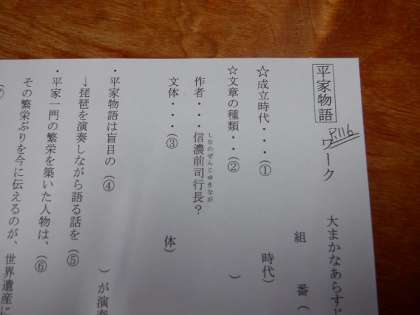 平家物語 ワーク 大まかなあらすじ
P116
組 番(
☆成立時代・・・(① 時代)
☆文章の種類・・(② )
作者・・・信濃前司行長?
しなのぜんじゆきなが
文体・・・(③ 体)
・平家物語は盲目の(④ )が演奏
→琵琶を演奏しながら語る話を(⑤
・平家一門の繁栄を築いた人物は、(⑥
その繁栄ぶりを今に伝えるのが、世界遺産に